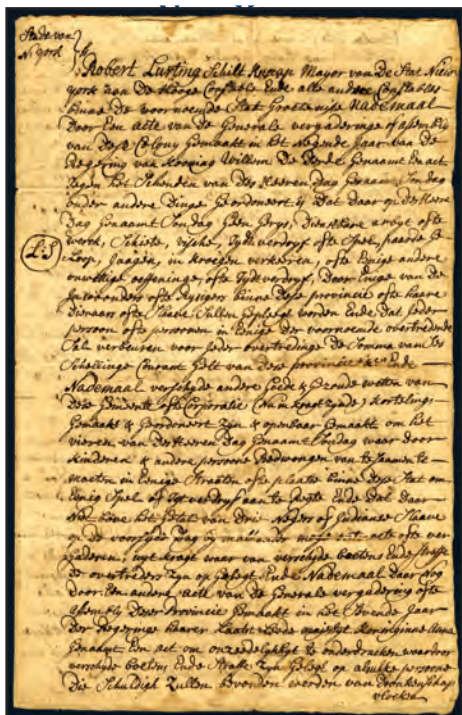 Stadt van
N: york
Robert Lurting Schilt knaap Mayor van De Stat Nieu
york aan De Hooge Constable Ende alle andere Constables
binne De voornoemde Stat Groetenisse Nademaal
Door Een Acte van De Generale vergaderinge of assembly
van Dese Colony Gemaakt in Het Negende Jaar van De
Regering van Koning Willem Die Derde Genaamt En act
tegen Het Schenden van Des Heeren Dag Genaamt Sondag
onder andere Dinge Geordoneert is Dat Daar op Des Heere
Dag Genaamt Sondag Geen Dienstbare arbyt ofte
werk, Schiete, vissche, Tydtverdryf ofte Spel, paarde
Loop, Jaagen, in kroegen verkeeren, ofte Einige andere
L:S
onwettige oeffeninge, ofte Tydt verdryf, Door Einige van De
Inwoonders ofte Rysigers binne Dese provincie ofte haare
Dienaars ofte Slaave Sullen Gepleegt worden Ende Dat Jeder
persoon ofte persoonen in Einige Der voornoemde overtredende
Sal verbeuren voor Jeder overtredinge De Somma van Ses
Schellinge Courant Gelt van Dese provincie Ende
Nademaal verschyde andere & Gezonde wetten van
Dese Gemeente ofte Corporatie (Nu in kragt zynde) kortelings
Gemaakt & Geordoneert Zyn & openbaar Gemaakt om Het
vieren van Des Heeren Dag Genaamt Sondag waar door
kinderen & andere persoone Bedwongen van te Saamen te
moeten in Einige Straaten ofte plaatse binne Dese Stat om
Einig Spel of Tyt verdryf aan te Ende Dat Daar
Niet boven Het Getal van Drie Negers of Indianse Slaave
op De voorschreven Dag by malkander ofte ver
gaderen; uyt kragt waar van verschyde boetens Ende Straffe
De overtreders Zyn op Gelegt Ende Nademaal Daar Nog
Door Een andere acte van De Generale vergadering ofte
assembly Deser Provincie Gemaakt in Het Tweede Jaar
Der Regeringe haarer Laatst Overlede majestyt koninginne Anna
Genaamt Een act om onzeedelykhyt te onderdrucken waardoor
verschyde boetens Ende Straffe Zyn Gelegt op alsulke persoone
Die Schuldigh Zullen bevonden worden van Dronkenschap
vloeken